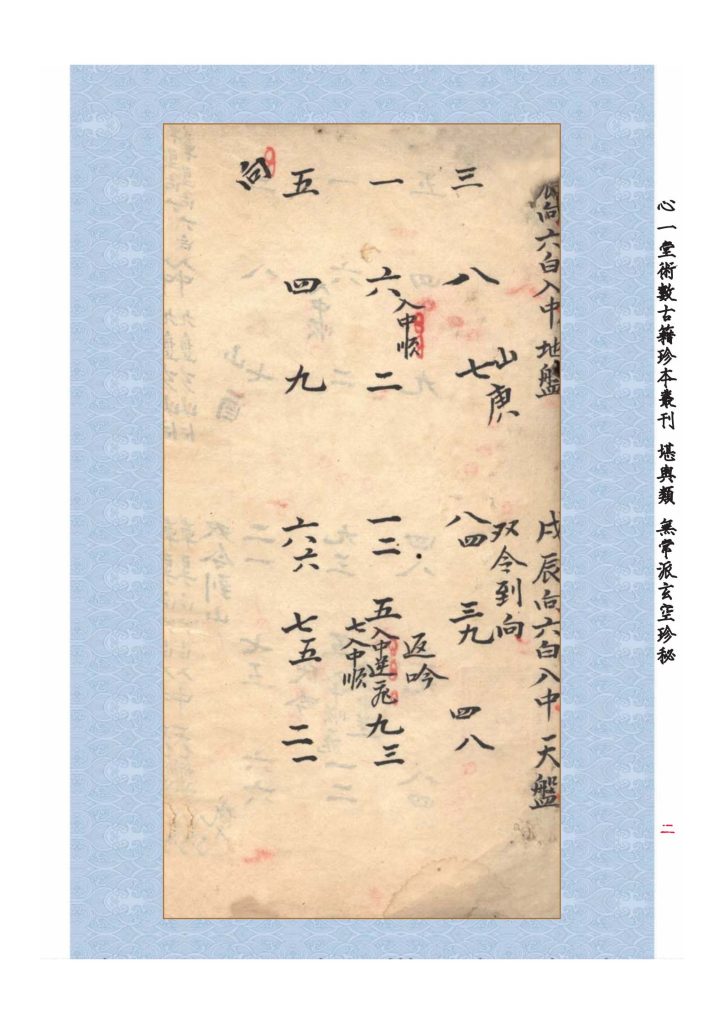 心一堂術數古籍珍本叢刊 堪輿類 無常派玄空珍秘
二
向六白入中地盤
戌辰向六白入中天盤
山庚
三 八 七
一 六入中順 二
向
五 四 九
双令到向
八四 三九 四八
返吟
一二 五入中逆飛 九三
七入中順
六六 七五 二一